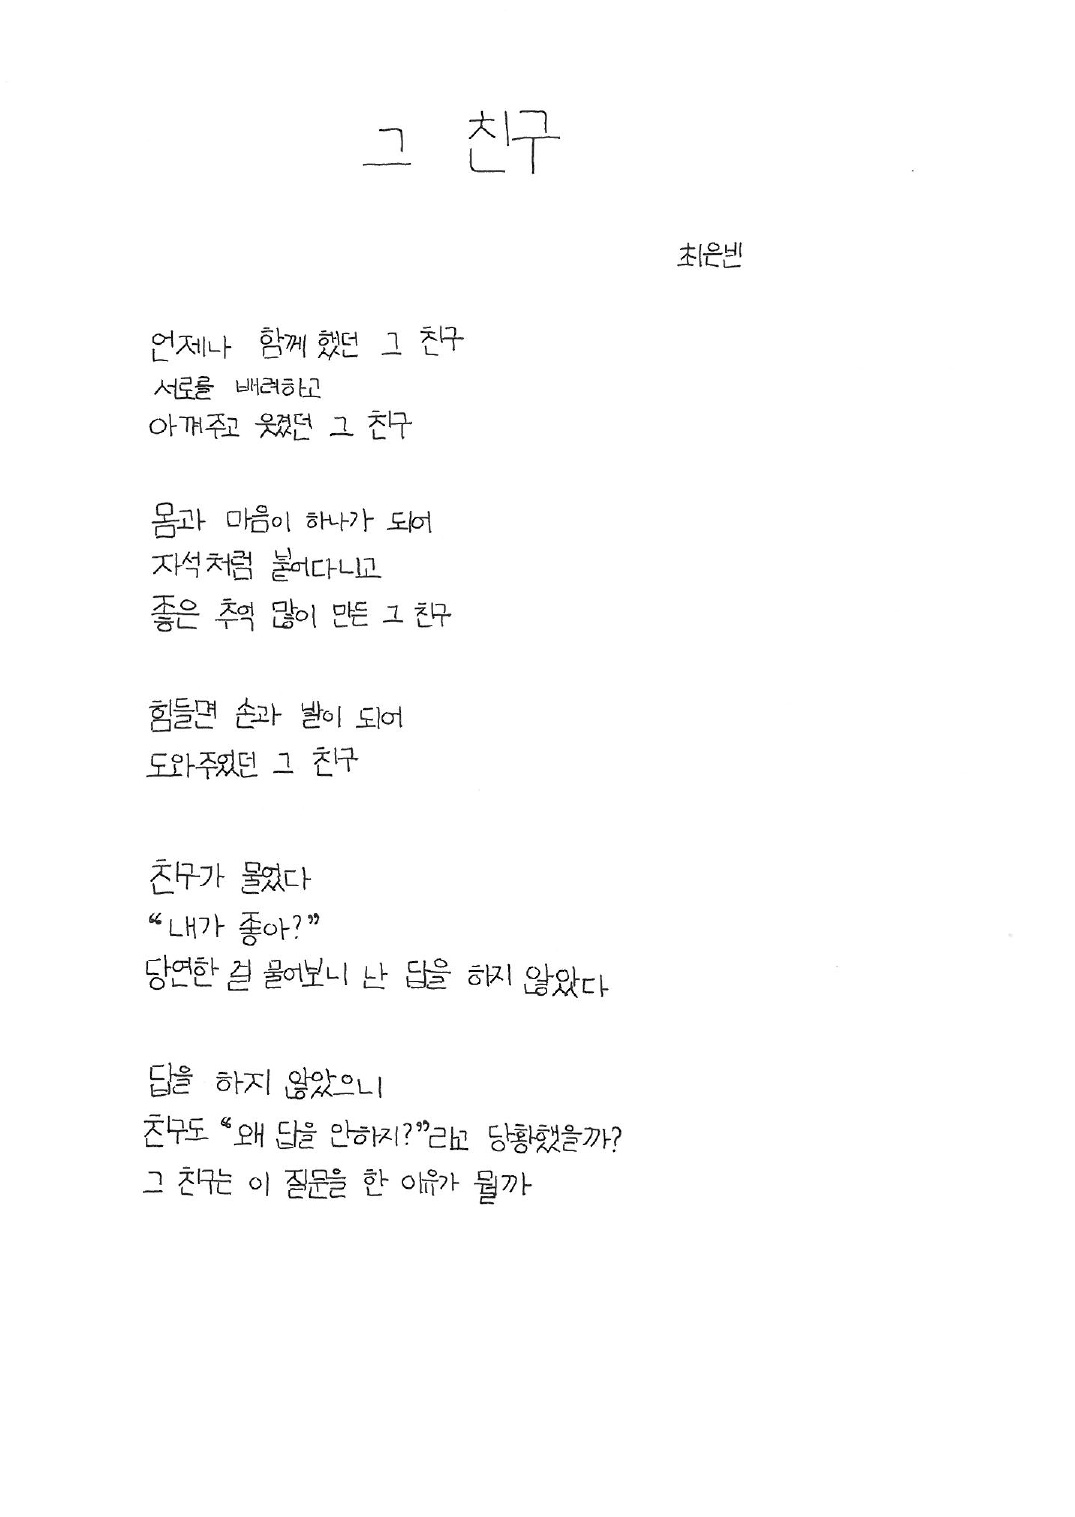 그 친구
최은빈
언제나 함께 했던 그 친구
서로를 배려하고
아껴주고 웃겼던 그 친구
몸과 마음이 하나가 되어
자석처럼 붙어다니고
좋은 추억 많이 만든 그 친구
힘들면 손과 발이 되어
도와주었던 그 친구
친구가 물었다
“내가 좋아?”
당연한 걸 물어보니 난 답을 하지 않았다
답을 하지 않았으니
친구도 “왜 답을 안하지?”라고 당황했을까?
그 친구는 이 질문을 한 이유가 뭘까